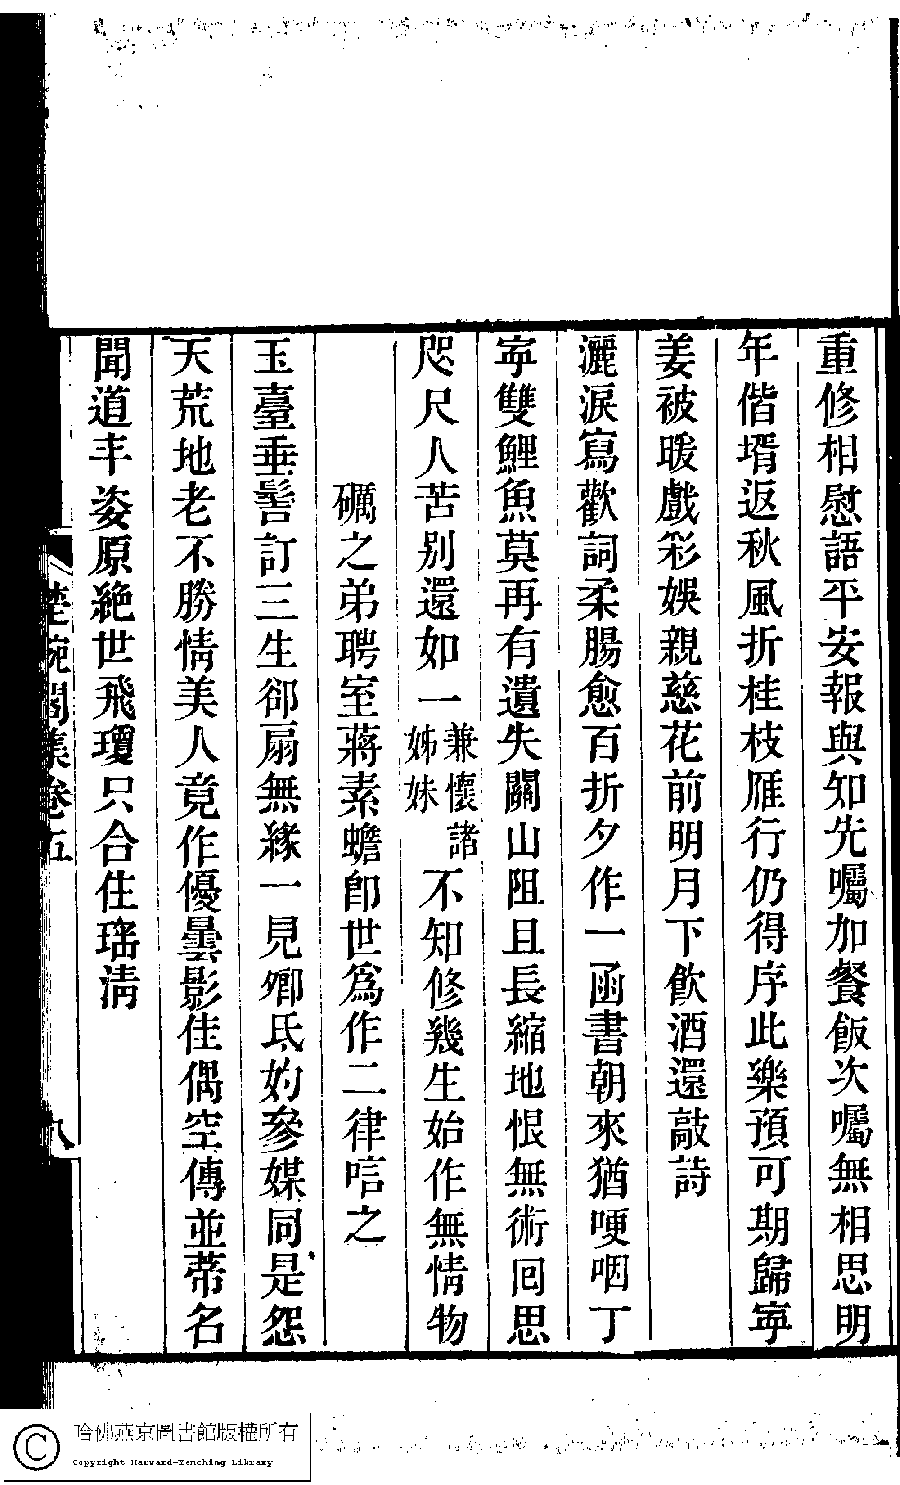 重修相慰語平安報與知先囑加餐飯次囑無相思明
年偕壻返秋風折桂枝雁行仍得序此樂預可期歸寧
姜被暖戲彩娛親慈花前明月下飲酒還敲詩
灑淚寫歡詞柔腸愈百折夕作一函書朝來猶哽咽丁
寧雙鯉魚莫再有遺失關山阻且長縮地恨無術回思
咫尺人苦別還如一兼懷諸姊妹不知修幾生始作無情物
礪之弟聘室蔣素蟾卽世爲作二律唁之
玉臺垂髫訂三生郤扇無緣一見卿氐妁參媒同是怨
天荒地老不勝情美人竟作優曇影佳偶空傳並蒂名
聞道丰姿原絕世飛瓊只合住瑤淸
楚畹閣集卷五
八
哈佛燕京圖書館版權所有
Copyright Harvard-Yenching Library